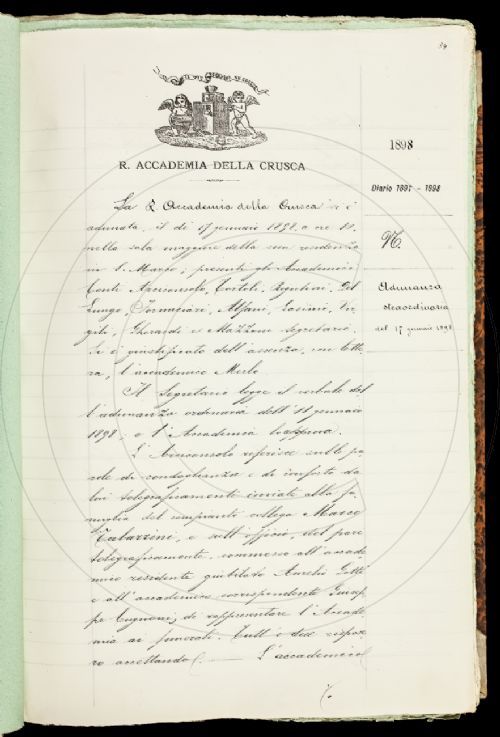 34
R. ACCADEMIA DELLA CRUSCA
1898
Diario 1897 - 1898
Adunanza
straordinaria
del 17 gennaio 1898
La R. Accademia della Crusca si è
adunata, il dì 17 gennaio 1898, a ore 11,
nella sala maggiore della sua residenza
in S. Marco; presenti gli Accademici
Conti Arciconsolo, Tortoli, Rigutini, Del
Lungo, Tornaciari, Alfani, Tasini, Vir-
gili, Gherardi e Mazzoni segretario.
Si è giustificato dell'assenza, con lette-
ra, l'accademico Merlo.
Il Segretario legge il verbale del-
l'adunanza ordinaria dell'11 gennaio
1898, e l'Accademia l'approva.
L'Arciconsolo riferisce sulle pa-
role di condoglianza e di conforto da
lui telegraficamente inviate alla fa-
miglia del compianto collega Marco
Tabarrini, e sull'officio, del pari
telegraficamente, commesso all'accade-
mico residente giubilato Aurelio Gotti
e all'accademico corrispondente Giusep-
pe Cugnoni, di rappresentare l'Accade-
mia ai funerali. Tutti e due rispose-
ro accettando. L'accademico